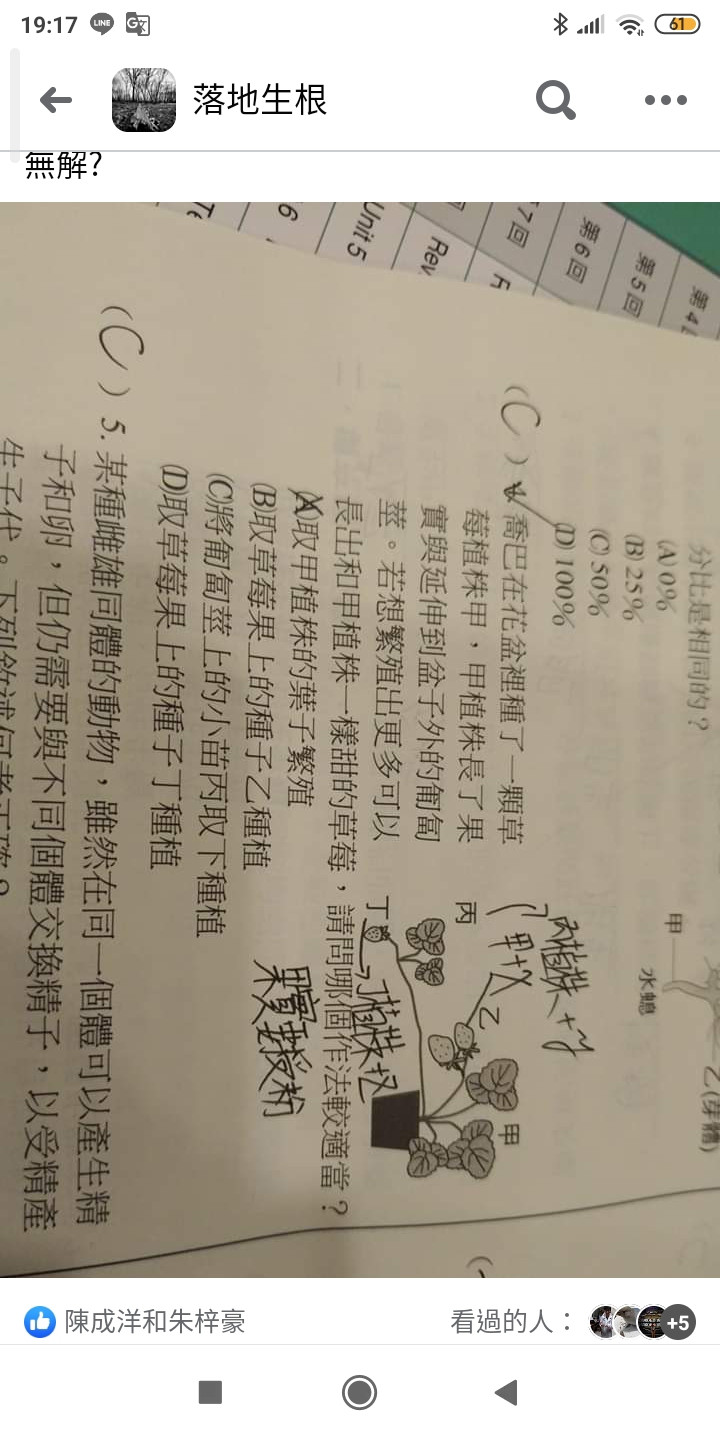 19:17
61
落地生根
無解?
第4
第5回
第6回
7回
F
Rev
Unit 5
6
Te
分比是相同的？
(A) 0%
(B) 25%
(C) 50%
(D) 100%
甲
水螅
乙(芽體)
(C)
喬巴在花盆裡種了一顆草
莓植株甲，甲植株長了果
實與延伸到盆子外的匍匐
莖。若想繁殖出更多可以
長出和甲植株一樣甜的草莓，請問哪個作法較適當？
(A)取甲植株的葉子繁殖
(B)取草莓果上的種子乙種植
(C)將匍匐莖上的小苗丙取下種植
(D)取草莓果上的種子丁種植
丙
丁
乙
甲
丙植株
丁植株
授粉
(C) 5. 某種雌雄同體的動物，雖然在同一個體可以產生精
子和卵，但仍需要與不同個體交換精子，以受精產
生子代。下列敘述何者正確？
陳成洋和朱梓豪
看過的人：
+5